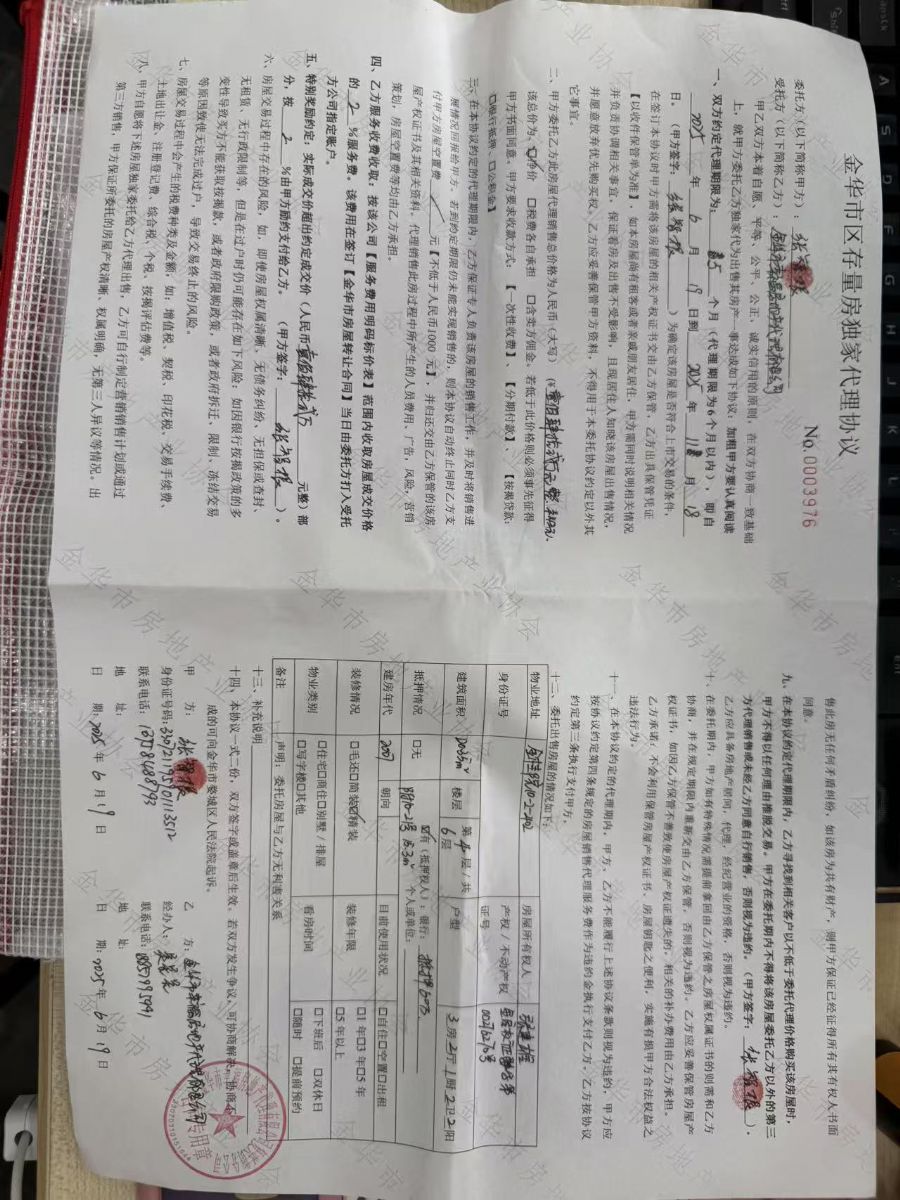 金华市区存量房独家代理协议
No.0003976
委托方（以下简称甲方）：
受托方（以下简称乙方）：
甲乙双方本着自愿、平等、公平、公正、诚实信用的原则，在双方协商一致基础
上，就甲方委托乙方独家代为出售其房产一事达成如下协议：加粗甲方要认真阅读
一、双方约定代理期限为： 个月（代理期限为6个月以内），即自
2025 年 6 月 19 日到 2025 年 月 18
日。（甲方签字： ）为确定该房屋是否符合上市交易的条件，
在签订本协议时甲方需将该房屋的相关产权证书交由乙方保管，乙方出具保管凭证
【以收件保管单为准】。如本房屋尚有租客或者亲戚朋友居住，甲方需同时说明相关情况
并负责协调相关事宜，保证看房及出售不受影响，且现居住人知晓该房屋出售情况，
并愿意放弃优先购买权。乙方应妥善保管甲方资料，不得用于本委托协议约定以外其
它事宜。
二、甲方委托乙方此房屋代理销售总价格为人民币（大写）
该总价为：□净价 □税费各自承担 □含卖方佣金。若低于此价格则必须事先征得
甲方书面同意。甲方要求收款方式：【一次性收费】、【分期付款】、【按揭贷款：
□商行抵押 □公积金】
三、在本协议约定的代理期限内，乙方保证专人负责该房屋的销售工作，并及时将销售进
展情况回报给甲方。若到约定期限仍未能实现销售的，则本协议自动终止同时乙方支
付甲方房屋空置费 元【不低于人民币1000 元】，并归还交由乙方保管的该房
屋产权证书及其相关资料。代理销售此房过程中所产生的人员费用，广告，风险，营销
策划，房屋空置费等均由乙方承担。
四、乙方服务收费收取：按该公司【服务费用明码标价表】范围内收取房屋成交价格
的 2 %服务费。该费用在签订【金华市房屋转让合同】当日由委托方打入受托
方公司指定账户。
五、特别奖励约定：实际成交价超出约定成交价（人民币 元整）部
分，按 2 %由甲方励约支付给乙方。（甲方签字： ）。
六、房屋交易过程中存在的风险，如，即使房屋权属清晰、无债务纠纷、无担保或查封、
无租赁、无行政限制等，但是在过户时仍可能存在如下风险：如因银行按揭政策的多
变性导致买方不能获取按揭款，或者政府限购政策，或者政府拆迁、限制、冻结交易
等原因致使无法完成过户，导致交易终止的风险。
七、房屋交易过程中会产生的税费种类及金额，如：增值税、契税、印花税、交易手续费、
土地出让金、注册登记费、综合税、个税、按揭评估费等。
八、甲方自愿将下述房屋独家委托给乙方代理出售，乙方可自行制定营销销售计划或通过
第三方销售，甲方保证所委托的房屋产权清晰、权属明确，无第三人异议等情况。出
售此房无任何矛盾纠纷，如该房为共有财产，则甲方保证已经征得所有其有权人书面
同意。
九、在本协议约定代理期限内，乙方寻找到相关客户以不低于委托代理价格购买该房屋时，
甲方不得以任何理由推脱交易。甲方在委托期内不得将该房屋委托乙方以外的第三
方代理销售或未经乙方同意自行销售，否则视为违约。（甲方签字： ）。
乙方应具备房地产居间，代理，经纪营业的资格，否则视为违约。
十、在委托期内，甲方如有特殊情况需提前拿回由乙方保管之房屋权属证书的则需和乙方
协商，并在规定期限内重新交由乙方保管，否则视为违约。乙方应妥善保管房屋产
权证书，如因乙方保管不善致使房屋产权证遗失的，相关的补办费用由乙方承担。
乙方承诺：不会利用保管房屋产权证书、房屋钥匙之便利，实施有损甲方合法权益之
违法行为。
十一、在本协议约定的代理期内，甲方、乙方不能履行上述协议条款则视为违约，甲方应
按协议约定第四条规定的房屋销售代理服务费作为违约金执行支付乙方，乙方按协议
约定第三条执行支付甲方。
十二、委托出售房屋的情况如下：
物业地址 房屋所有权人
身份证号 产权/不动产权证号
建筑面积 楼层 第 4 层/共 6 层 户型 3 房 2 厅 1 厨 2 卫 2 阳
抵押情况 □无 ☑有（抵押权人）：银行： 个人或单位：
建房年代 朝向 目前使用状况 □自住□空置□出租
装修情况 □毛还□简装☑精装 装修年限 □1年□3年□5年 □5年以上
物业类别 □住宅□商住□别墅/排屋 □写字楼□其他 看房时间 □下班后 □双休日 □随时 □提前预约
备注 声明：委托房屋与乙方无利害关系
十三、补充说明
十四、本协议一式二份，双方签字或盖章后生效。若双方发生争议，可协商解决，协商不
成的可向金华市婺城区人民法院起诉。
甲 方： 乙 方：
身份证号码： 经办人：
联系电话：13758488793 联系电话：
地 址： 地 址：
日 期：2025 年 6 月 19 日 日 期：2025 年 6 月 19 日